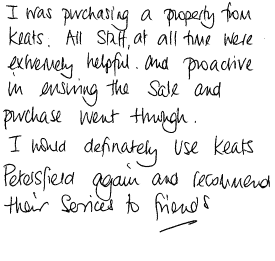 I was purchasing a property from
Keats. All Staff, at all time were
extremely helpful. and proactive
in ensuring the Sale and
purchase went through.
I would definately use Keats
Petersfield again and recommend
their Services to friends